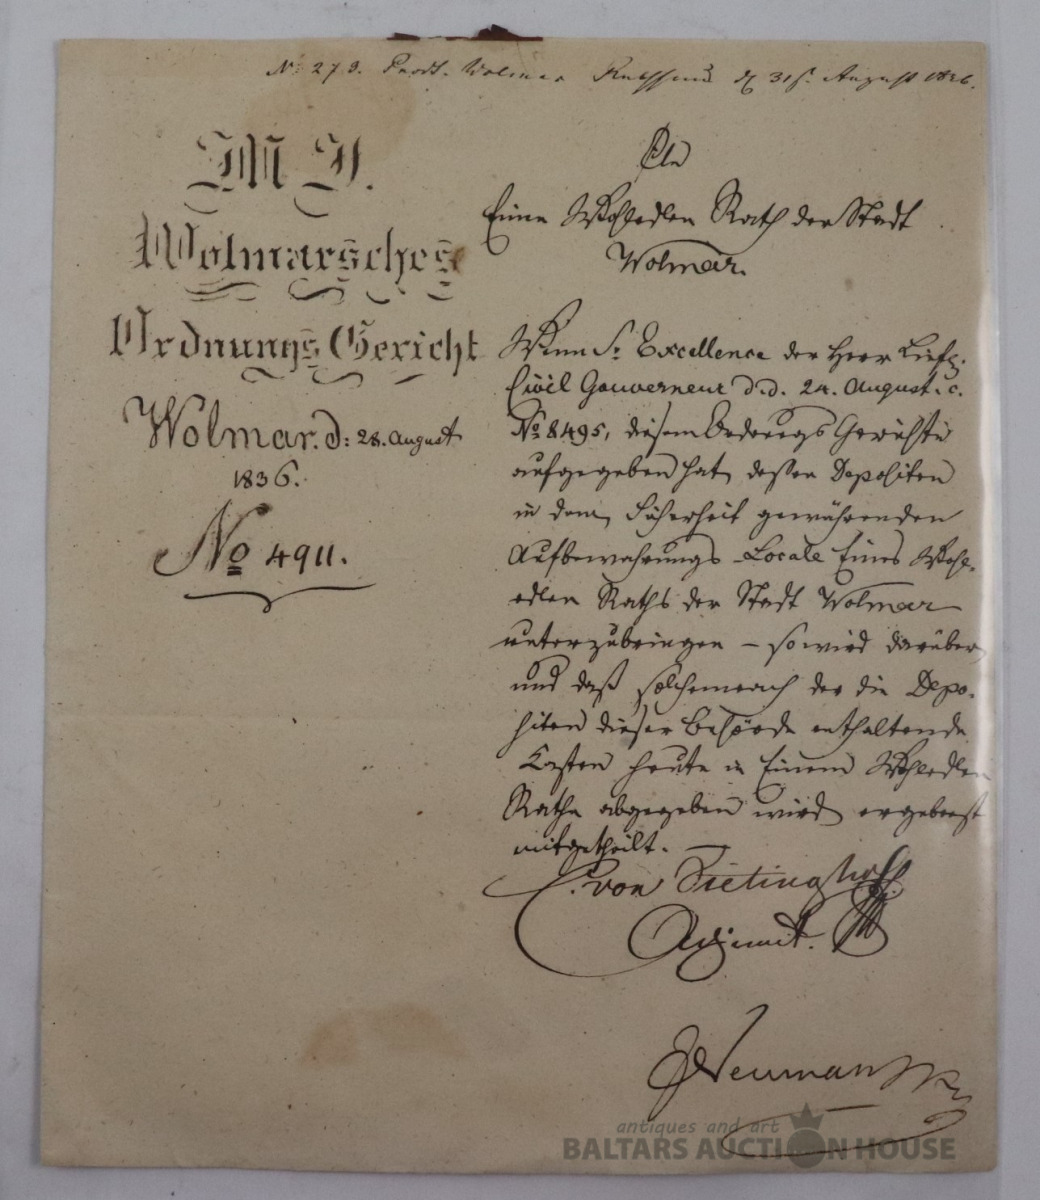 No 273. Prodt. Wolmar Rathhaus d 31st. August 1836.
M I.
Wolmarsches
Ordnungs Gericht
Wolmar. d: 28. August
1836.
No 4911.
An
Einen Wohledlen Rath der Stadt
Wolmar.
Wenn Sr. Excellence der Herr Liefl.
Civil Gouverneur d.d. 24. August. c.
No 8495, diesem Ordnungs Gerichte
aufgegeben hat, dessen Depositen
in dem, Sicherheit gewährenden
Aufbewahrungs-Locale Eines Wohl-
edlen Raths der Stadt Wolmar
unterzubringen – so wird darüber,
und daß solchemnach der die Depo-
siten dieser Behörde enthaltende
Kasten heute in Einem Wohledlen
Rathe abgegeben wird ergebenst
mitgetheilt.
C. von Vietinghoff
Adjunct.
Neumann
antiques and art
BALTARS AUCTION HOUSE